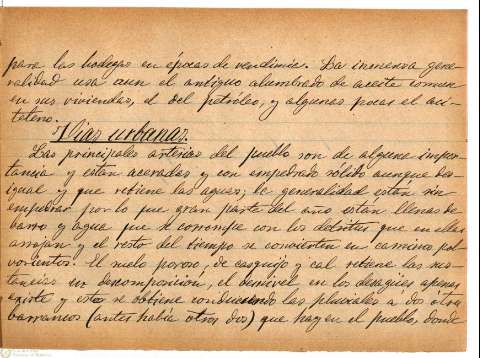 para las bodegas en épocas de vendimia. La inmensa gene-
ralidad usa aun el antiguo alumbrado de aceite comun
en sus viviendas, el del petróleo, y algunas pocas el aci-
teleno.
Vias urbanas.
Las principales arterias del pueblo son de alguna impor-
tancia y están aceradas y con empedrado sólido aunque desi-
gual y que retiene las aguas; la generalidad están sin
empedrar por lo que gran parte del año están llenas de
barro y agua que se corrompe con los detritus que en ellas
arrojan y el resto del tiempo se convierten en caminos pol-
vorientos. El suelo poroso, de casquijo y cal retiene las sus-
tancias en descomposición, el desnivel en los desagües apenas
existe y esto se obtiene conduciendo las pluviales a dos ó tres
barrancos (antes había otros dos) que hay en el pueblo, donde